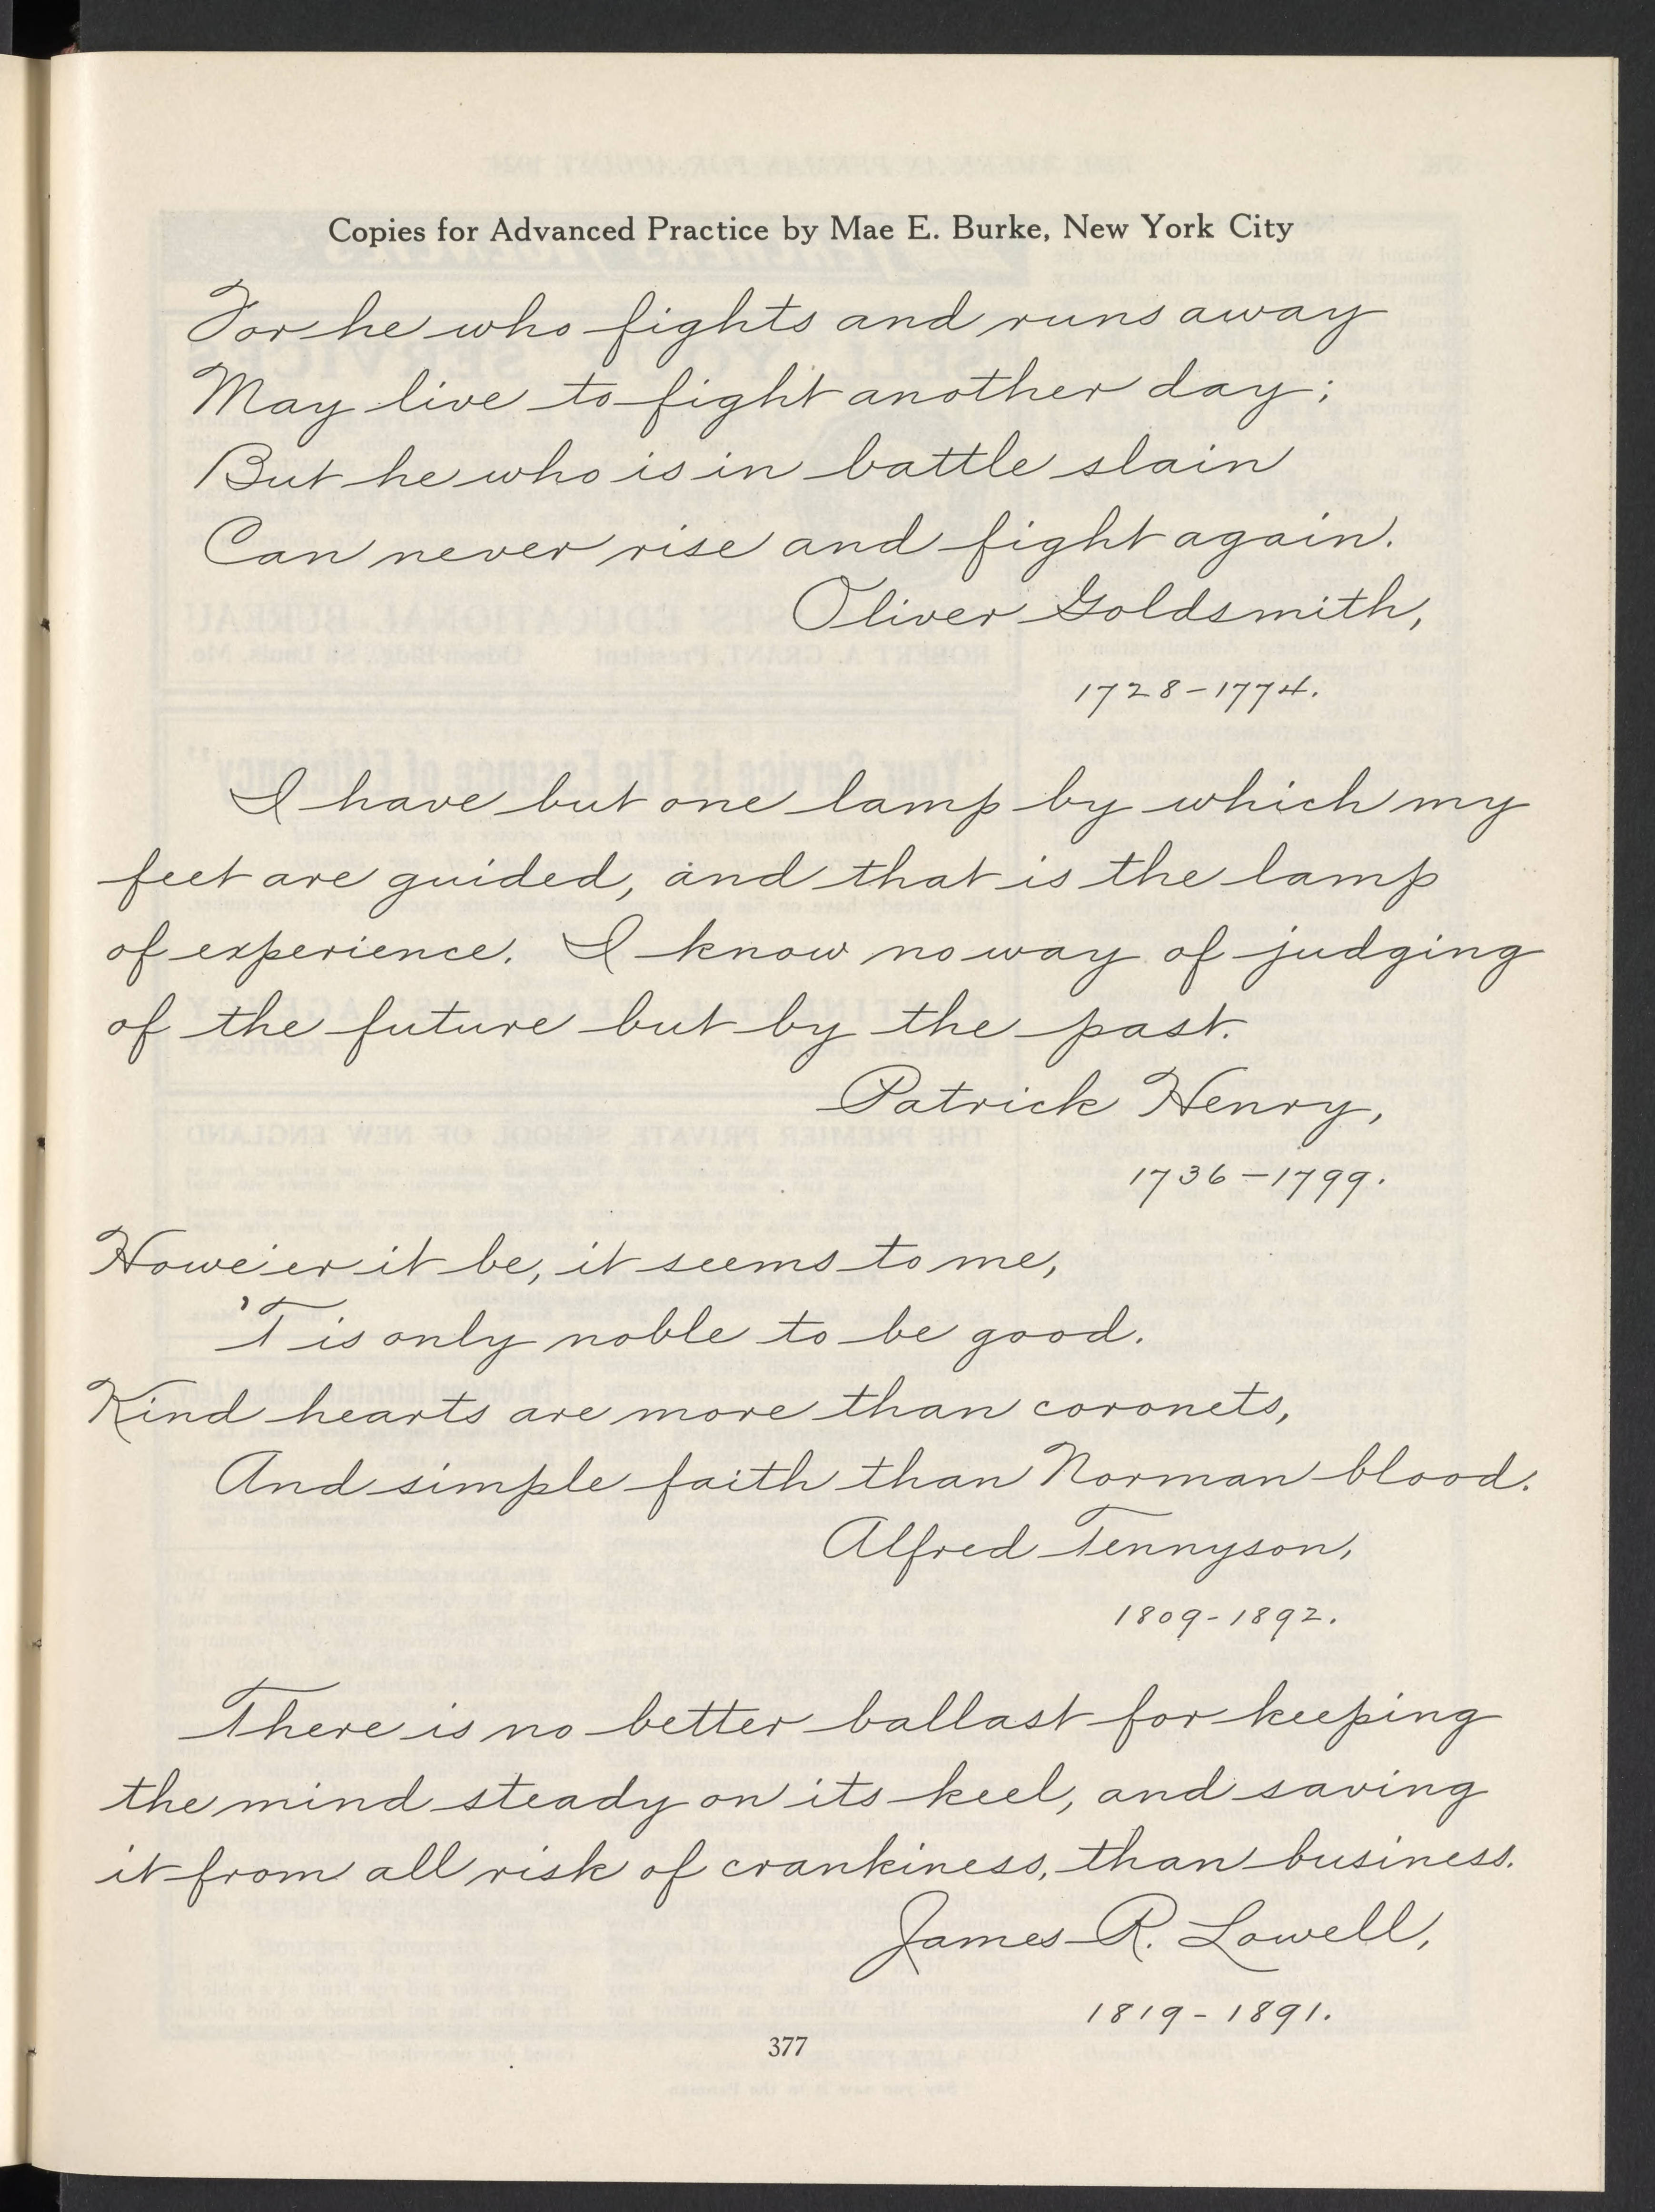 Copies for Advanced Practice by Mae E. Burke, New York City
For he who fights and runs away
May live to fight another day;
But he who is in battle slain
Can never rise and fight again.
Oliver Goldsmith,
1728-1774.
I have but one lamp by which my
feet are guided, and that is the lamp
of experience. I know no way of judging
of the future but by the past.
Patrick Henry,
1736-1799.
Howe'er it be, it seems to me,
'Tis only noble to be good.
Kind hearts are more than coronets,
And simple faith than Norman blood.
Alfred Tennyson,
1809-1892.
There is no better ballast for keeping
the mind steady on its keel, and saving
it from all risk of crankiness, than business.
James R. Lowell,
1819-1891.
377